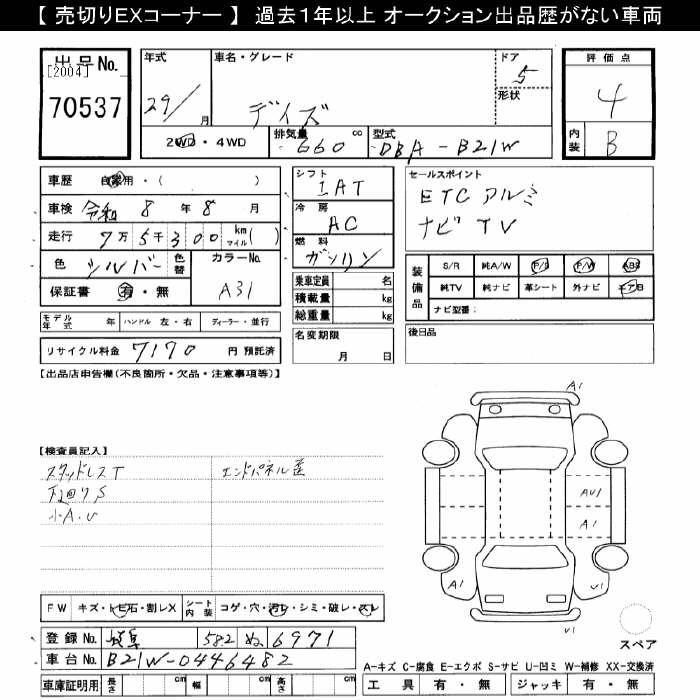 【 売切りEXコーナー 】 過去１年以上 オークション出品歴がない車両
出品No.
[2004]
70537
年式
29/ 月
車名・グレード
デイズ
ドア
5
形状
2WD・4WD
排気量
660 cc
型式
DBA-B21W
評価点
4
内装
B
車歴 自家用・( )
車検 令和 8 年 8 月
走行 7万5千300 km マイル( )
色 シルバー 色替
カラーNo.
A31
保証書 有・無
シフト
IAT
冷房
AC
燃料
ガソリン
乗車定員 名
積載量 kg
総重量 kg
名変期限
月 日
セールスポイント
ETC アルミ
ナビ TV
装備品
S/R 純A/W P/S P/W ABS
純TV 純ナビ 革シート 外ナビ エアB
ナビ型番：
後日品
モデル年式 年 ハンドル 左・右 ディーラー・並行
リサイクル料金 7170 円 預託済
【出品店申告欄(不良箇所・欠品・注意事項等)】
【検査員記入】
スタッドレスT
下廻りS
小A.U
エンドパネル歪
A1
AU1
A1
A1
U1
U1
スペア
FW キズ・トビ石・割レX シート内装 コゲ・穴・汚レ・シミ・破レ・スレ
登録No. 岐阜 582 ぬ 6971
車台No. B21W-0446482
車庫証明用 長さ cm 幅 cm 高さ cm
A-キズ C-腐食 E-エクボ S-サビ U-凹ミ W-補修 XX-交換済
工具 有・無 ジャッキ 有・無